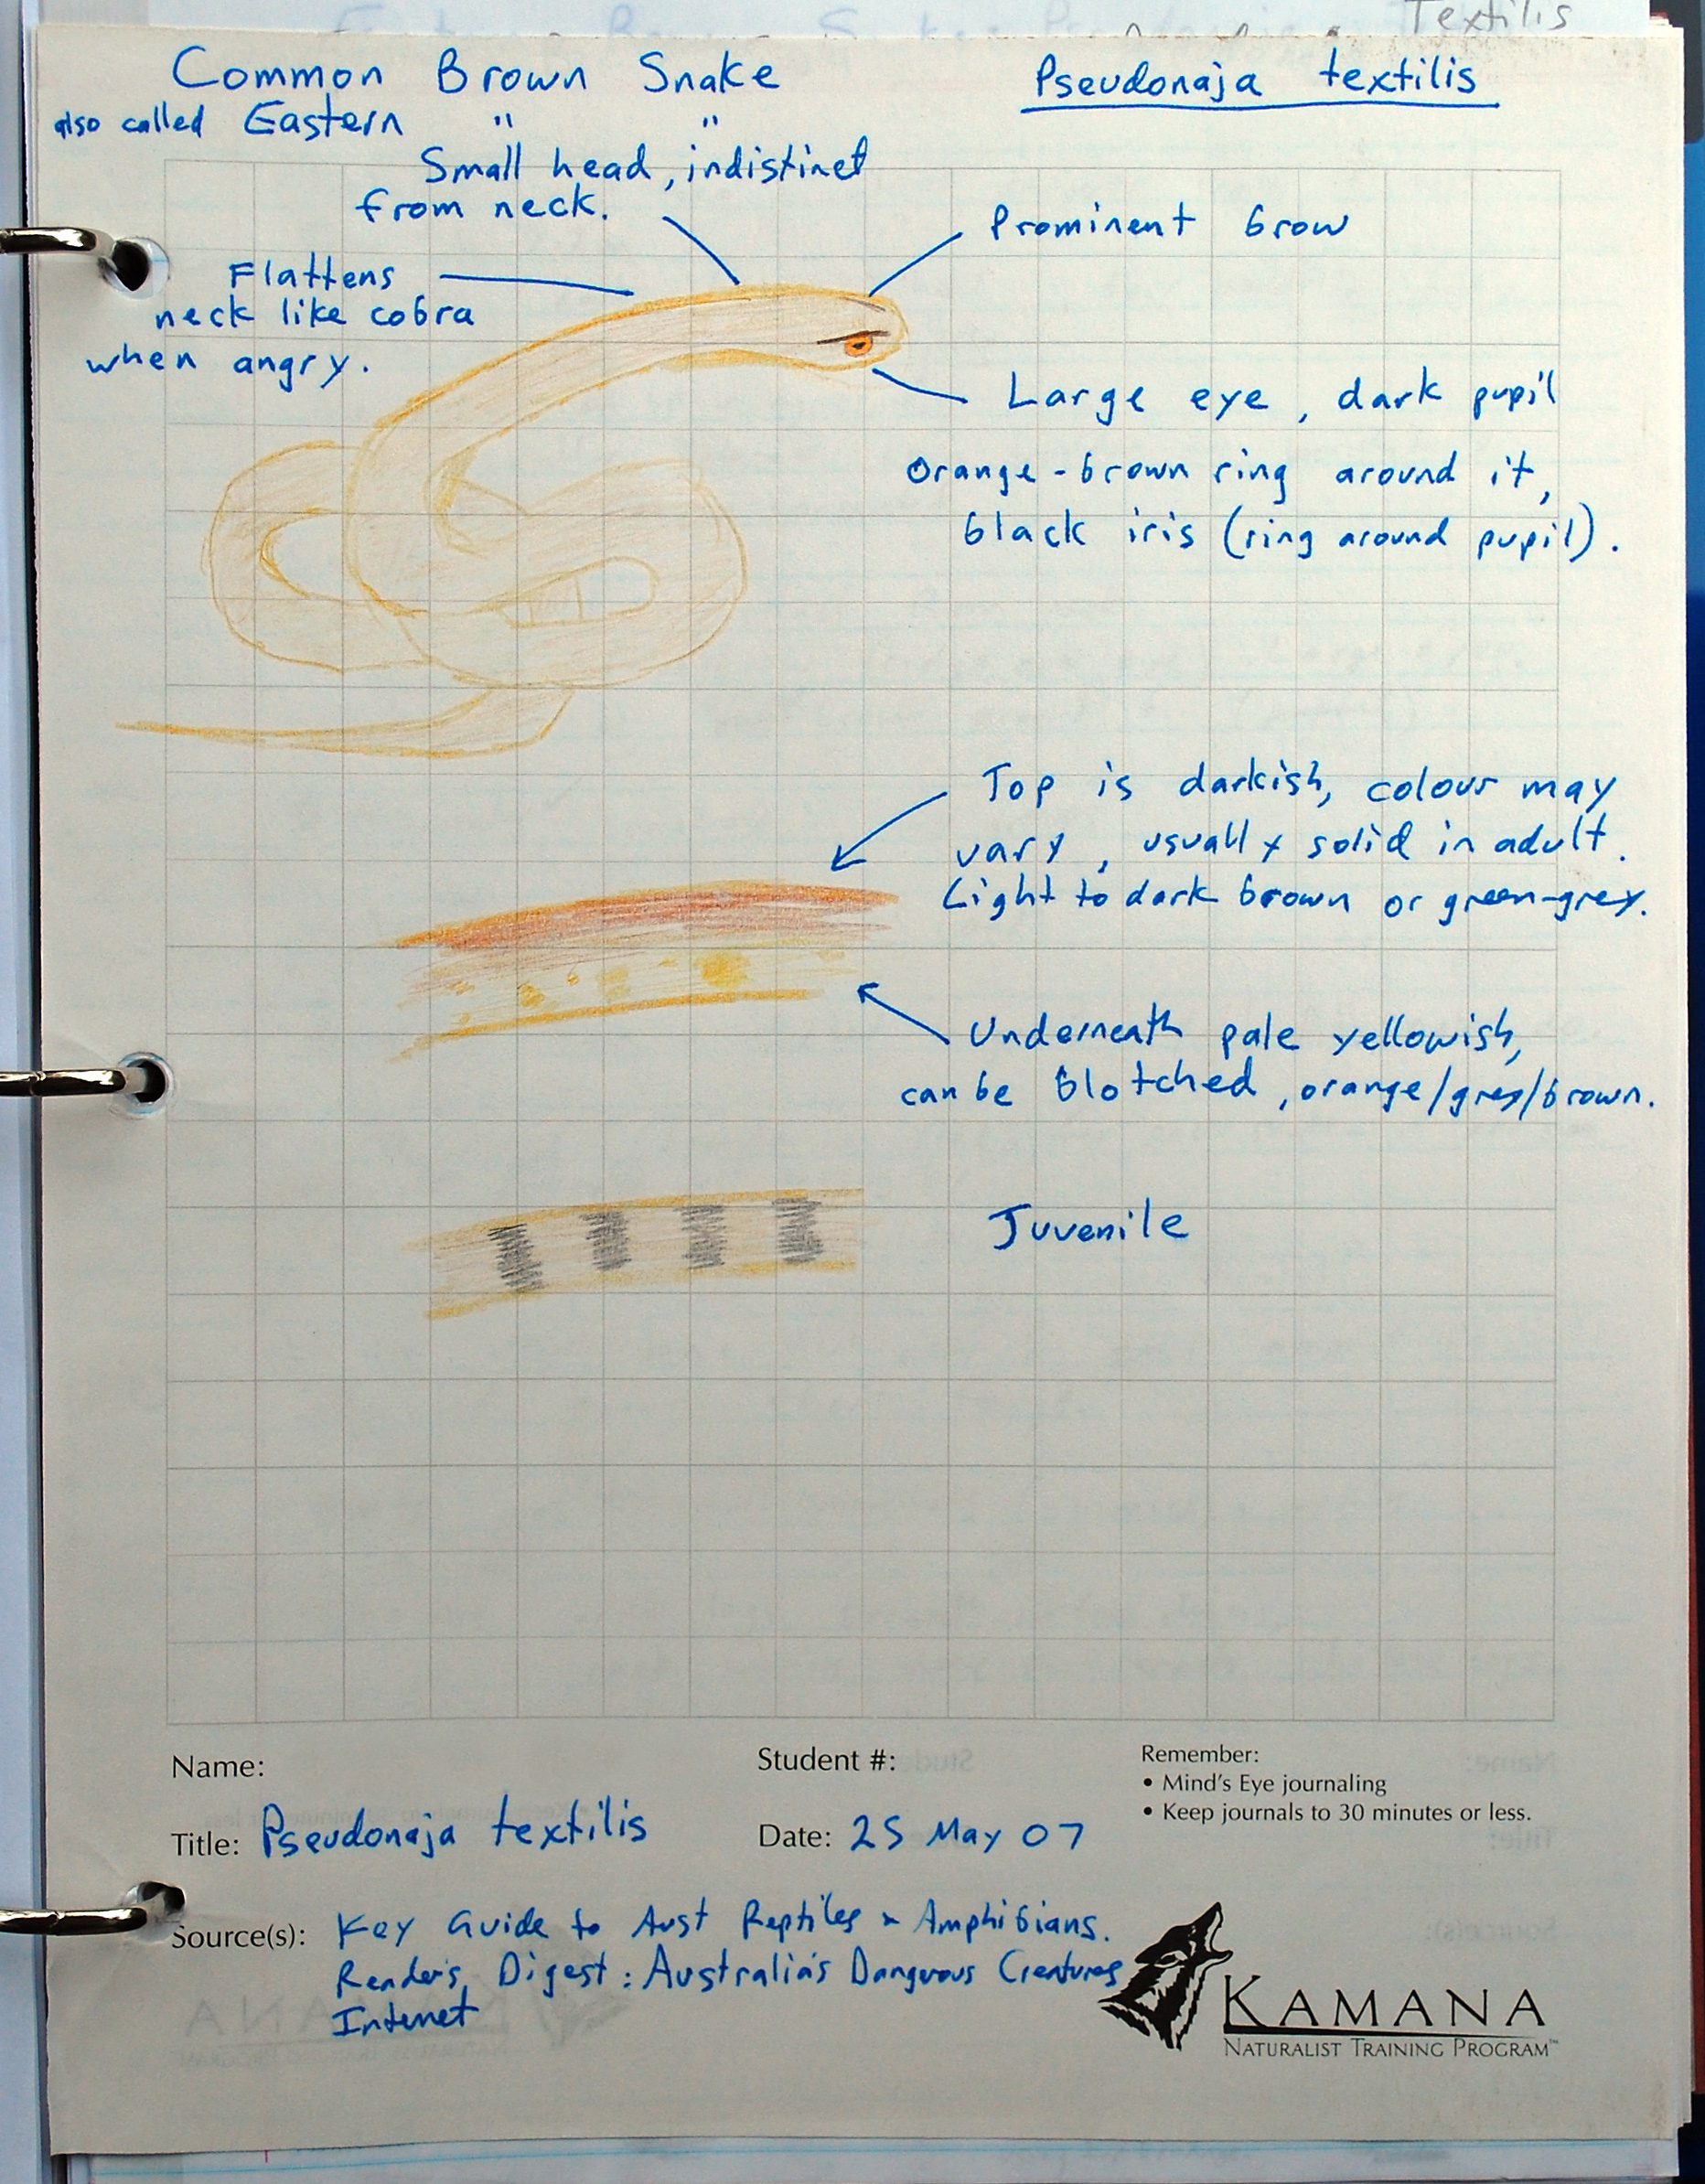 Textilis
Common Brown Snake
Pseudonaja textilis
also called Eastern " "
Small head, indistinct
from neck.
Prominent brow
Flattens
neck like cobra
when angry.
Large eye, dark pupil
Orange-brown ring around it,
black iris (ring around pupil).
Top is darkish, colour may
vary, usually solid in adult.
Light to dark brown or green-grey.
Underneath pale yellowish,
can be blotched, orange/grey/brown.
Juvenile
Name:
Student #:
Remember:
• Mind's Eye journaling
• Keep journals to 30 minutes or less.
Title: Pseudonaja textilis
Date: 25 May 07
Source(s): Key Guide to Aust Reptiles & Amphibians.
Reader's Digest: Australia's Dangerous Creatures
Internet
KAMANA
NATURALIST TRAINING PROGRAM™